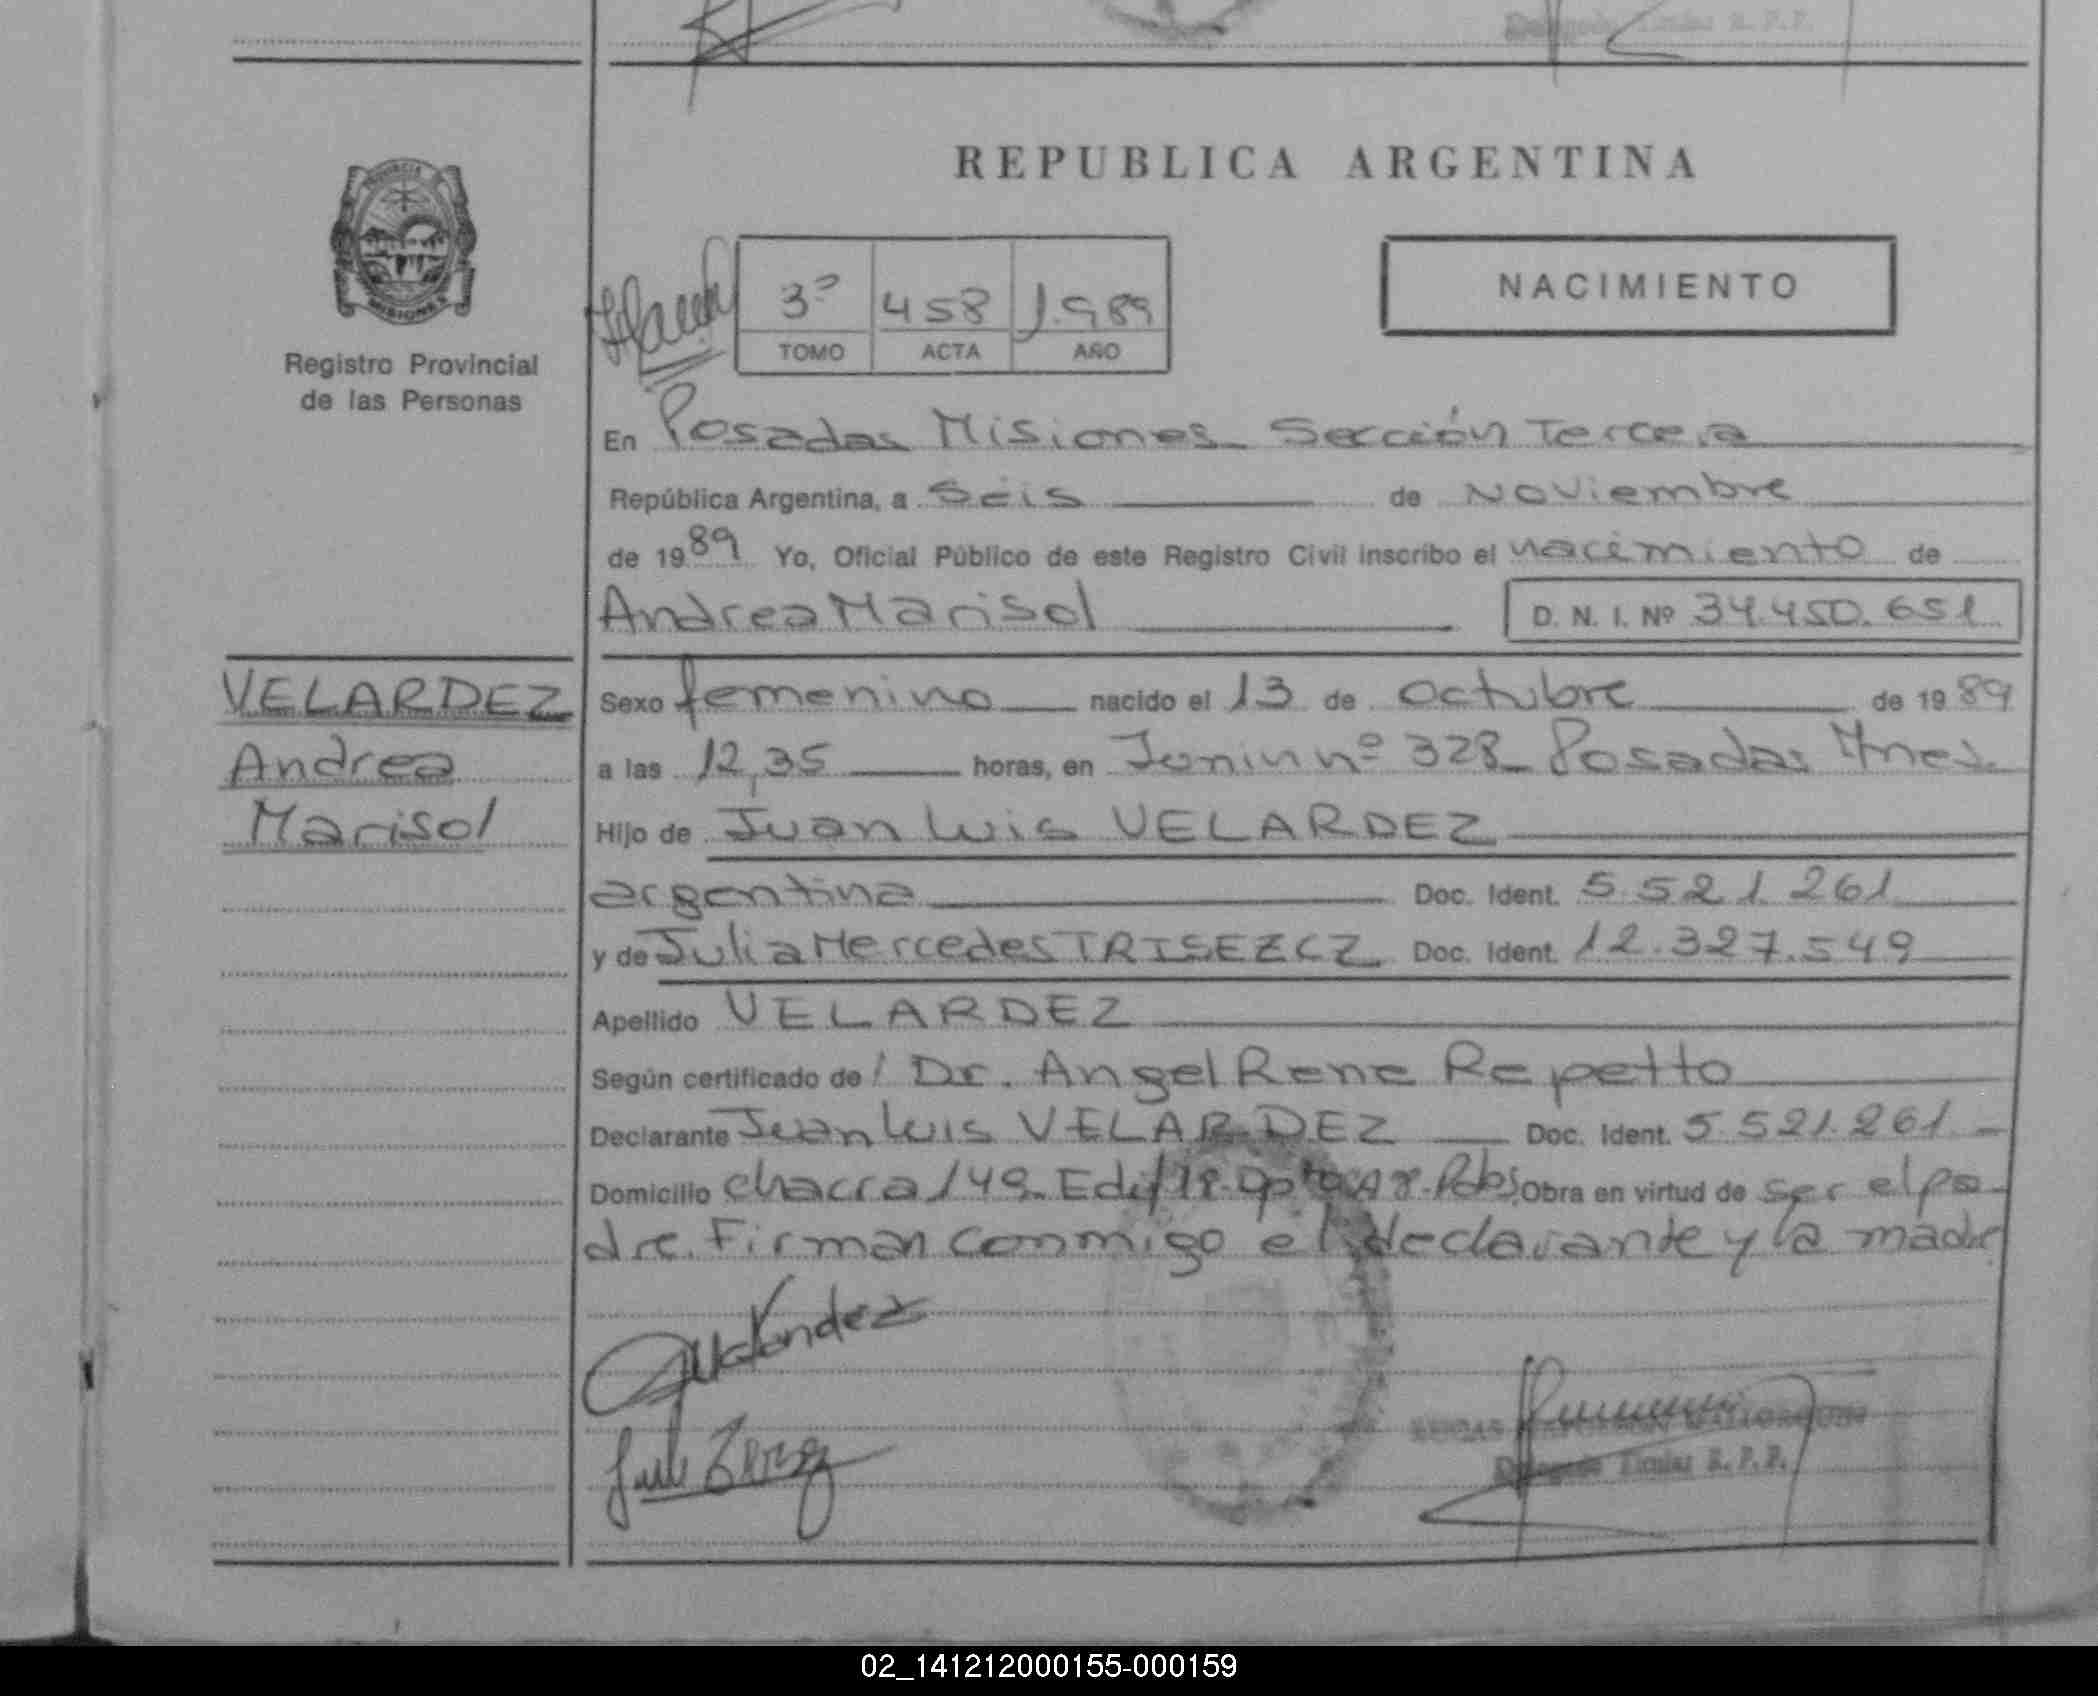 REPUBLICA ARGENTINA
PROVINCIA
MISIONES
Registro Provincial
de las Personas
NACIMIENTO
3º 458 1.989
TOMO ACTA AÑO
En Posadas Misiones Sección Tercera
República Argentina, a Seis de Noviembre
de 1989 Yo, Oficial Público de este Registro Civil inscribo el nacimiento de
Andrea Marisol D. N. I. Nº 34.450.651
VELARDEZ
Andrea
Marisol
Sexo femenino nacido el 13 de octubre de 1989
a las 12,35 horas, en Junin nº 328 Posadas Mnes.
Hijo de Juan Luis VELARDEZ
argentina Doc. Ident. 5.521.261
y de Julia Mercedes Doc. Ident. 12.327.549
Apellido VELARDEZ
Según certificado de Dr. Angel Rene Repetto
Declarante Juan Luis VELARDEZ Doc. Ident. 5.521.261
Domicilio chacra 149 Obra en virtud de ser el pa
dre. Firman conmigo el declarante y la madre
Titular R.P.P.
02_141212000155-000159